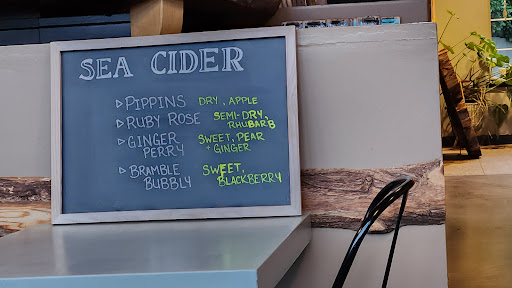 SEA CIDER
▹PIPPINS DRY, APPLE
▹RUBY ROSE SEMI-DRY, RHUBARB
▹GINGER PERRY SWEET, PEAR + GINGER
▹BRAMBLE BUBBLY SWEET, BLACKBERRY